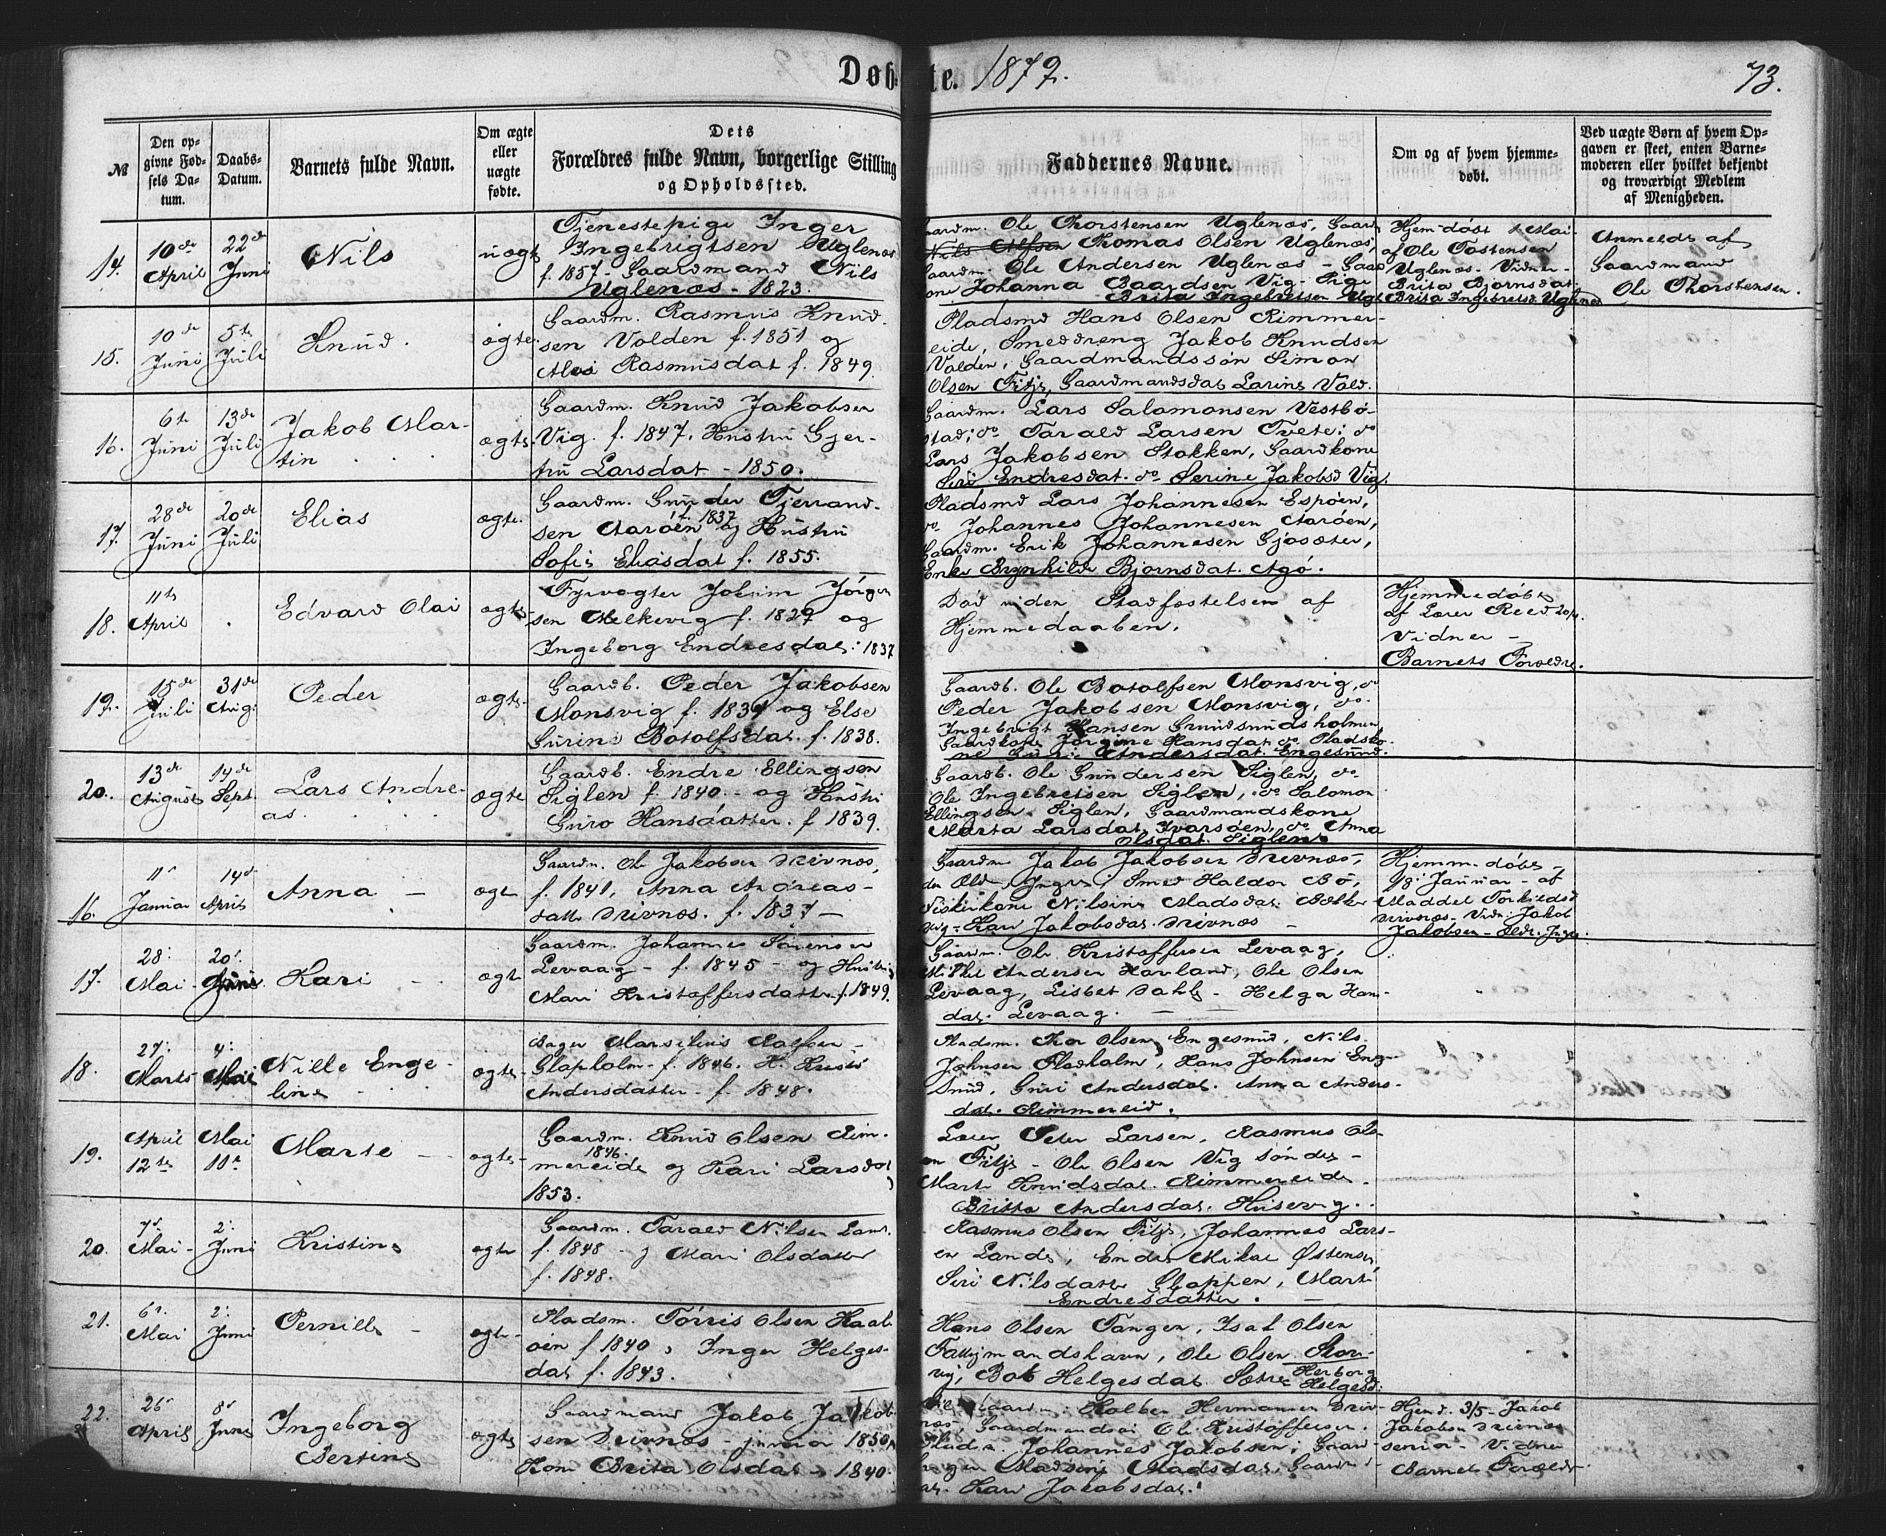 Døbte. 1879.
73.
№
Den opgivne Fødsels Datum.
Daabs-Datum.
Barnets fulde Navn.
Om ægte eller uægte fødte.
Dets Forældres fulde Navn, borgerlige Stilling og Opholdssted.
Faddernes Navne.
Om og af hvem hjemmedøbt.
Ved uægte Børn af hvem Opgaven er skeet, enten Barnemoderen eller hvilket bekjendt og troværdigt Medlem af Menigheden.
14.
10de April
22de Juni
Nils
uægte
Tjenestepige Inger
Ingebrigtsen Uglenæs
f. 1857 - Gaardmand Nils
Uglenæs - 1823.
Ole Thorstensen Uglenæs, Gaard
Thomas Olsen Uglenæs,
Gaardm. Ole Andersen Uglenæs - Gaard
kone Johanna Baardsen Vig - Pige
Brita Ingebretsen Ugl.
Hjemdøbt 1 Mai
af Ole Tostensen
Uglenæs - Vidner -
Brita Bjornsdat.
Brita Ingebretsd. Uglenæs
Anmeldt af
Gaardmand
Ole Thorstensen.
15.
10de Juni
5te Juli
Knud.
ægte
Gaardm. Rasmus Knud-
sen Valden f. 1851 og
Rasmusdat f. 1849.
Pladsmd Hans Olsen Rimmer-
eide, Smeddreng Jakob Knudsen
Valden, Gaardmandssøn Simon
Olsen Fitje, Gaardmandsdat Larine Vald.
16.
6te Juni
13de Juli
Jakob Mar-
tin
ægte.
Gaardm. Knud Jakobsen
Vig. f. 1847, Hustru Gjer-
tru Larsdat - 1850.
Gaardm. Lars Salomonsen Vestbø-
stad; do Tarald Larsen Tveit; do
Lars Jakobsen Stokken, Gaardkone
Siri Endresdat. do Serine Jakobsd Vig.
17.
28de Juni
20de Juli
Elias
ægte.
Gaardm. Gunder Tjerand-
sen Aarøen f. 1837 og Hustru
Sofie Eliasdat f. 1855.
Pladsmd Lars Johannesen Espøen,
do Johannes Johannesen Aarøen,
Gaardm. Erik Johannesen Gjøsæter,
Enke Brynhilde Bjornsdat. Agø.
18.
11te April
Edvard Olai
ægte
Fyrvogter Johim Jørgen
sen Melkevig f. 1829 og
Ingeborg Endresdat: 1837
Død uden Stadfæstelsen af
Hjemmedaaben.
Hjemmedøbt
af Lærer Reed 20/4.
Vidner -
Barnets Forældre.
19.
15de Juli
31de Aug.
Peder
ægte.
Gaardb. Peder Jakobsen
Monsvig f. 1834 og Else
Gurine Botolfsdat. f. 1838.
Gaardb. Ole Botolfsen Monsvig, do
Peder Jakobsen Monsvig, do.
Ingebrigt Hansen Grundsundsholmen
Gaardkone Jorgine Hansdat do. Pladsko-
ne Guri Andersdat. Engesund.
20.
13de August
14de Sept.
Lars Andre-
as.
ægte
Gaardb. Endre Ellingsen
Siglen f. 1840 - og Hustru
Guro Hansdatter. f. 1839.
Gaardb. Ole Gundersen Siglen, do
Ole Ingebretsen Siglen, do Salomon
Ellingsen Siglen, Gaardmandskone
Marta Larsdat Ivarsøen, do Anna
Olsdat. Siglen.
16.
11te Januar
14de April
Anna -
ægte
Gaardm. Ole Jakobsen Drivnæs,
f. 1841, Anna Andreas-
datt Drivnæs. f. 1837 -
Gaardm Jakob Jakobsen Drivnæs,
Smed Haldor Bø,
Fiskerkone Nilsine Madsdat.
Kari Jakobsdat. Drivnæs -
Hjemm. døbt -
18. Januar - af
Maddel Torkildsd
Drivnæs - Vidn: Jakob
Jakobsen -
17.
28. Mai -
20. Juni
Kari
ægte
Gaardm. Johannes Sørensen
Levaag - f. 1845 - og Hustru
Mari Kristoffersdatter f. 1849.
Gaardm. Ole Kristoffersen Levaag,
Mikkel Andersen Havland, Ole Olsen
Levaag, Lisbet Dahl - Helga Han-
dat. Levaag.
18.
27. Marts
4. Mai
Nille Enge-
line
ægte
Marsilius Rolfsen -
f. 1846. H. Kristi
Andersdatter - f. 1848.
Thor Olsen Engesund, Nils
Johnsen Fladholm, Hans Johnsen Enge
sund, Guri Andersdat. Anna Anders-
dat. Rimmereid.
19.
April 12te
Mai 11te
Marte -
ægte
Gaardm. Knud Olsen Rim-
mereide 1846. og Kari Larsdat
1853.
Lærer Peter Larsen, Rasmus Ol-
en Fitje - Ole Olsen Vig søndre -
Mart Knudsdat. Rimmereide.
Britta Andersdat. Husevig.
20.
7de Mai -
2. Juni
Kristine
ægte
Gaardm. Tarald Nilsen Lande
f. 1848 - og Mari Olsdatter
f. 1848.
Rasmus Olsen Fitje, Johannes Lars-
en Lande, Endre Mikal Østensen
Siri Nilsdatter Gloppen, Marti
Endresdatter. -
21.
6te Mai
2. Juni
Pernille -
ægte
Pladsm. Torris Olsen Haab-
øen f 1840, Inger Helges-
dat f. 1843.
Hans Olsen Tanger, Isak Olsen
Fattigmandshavn, Ole Olsen Kor-
vig, Helgesdat. Sætre Herborg
Helgesd.
22.
26de April
8de Juni
Ingeborg
Bertine
ægte
Gaardmand Jakob Jakob-
sen Drivnæs - junior 1850,
Kone Brita Olsdat - 1840.
Gaardm. Halber Hermansen Driv-
næs - Ole Kristoffersen
Johannes Jakobsen, Gaard-
Madsine Madsdat,
Kari Jakobsdat.
Hjemd. 3/5 - Jakob
Jakobsen Drivnæs
senior - Vidner
Barnets Forældre